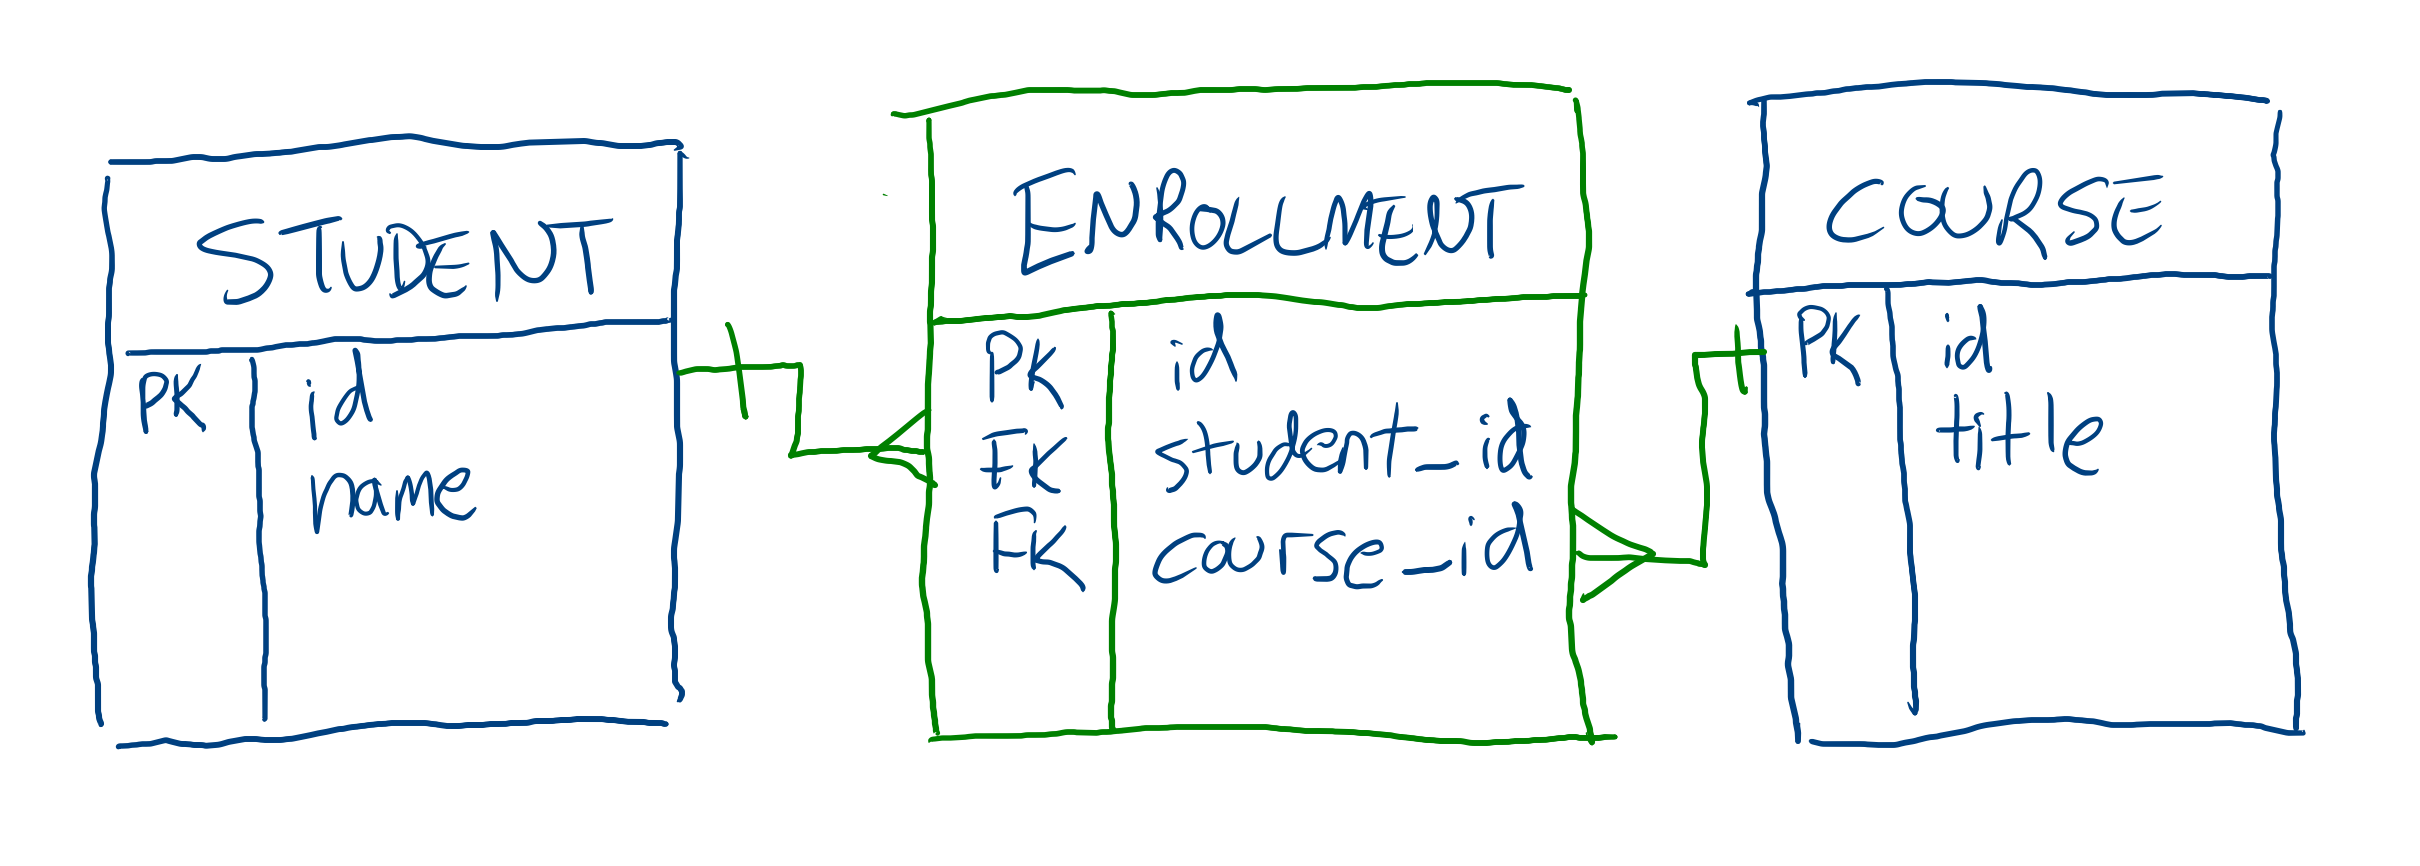 STUDENT
PK id
name
ENROLLMENT
PK id
FK student_id
FK course_id
COURSE
PK id
title